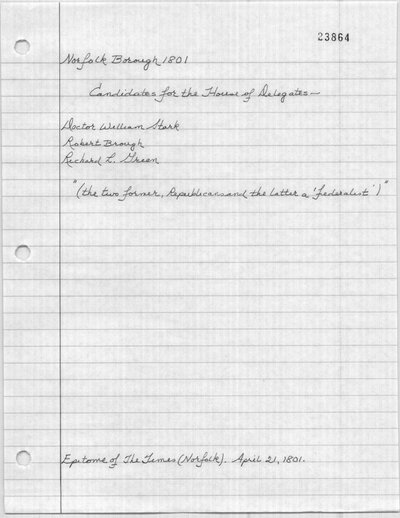 23864
Norfolk Borough 1801
Candidates for the House of Delegates—
Doctor William Stark
Robert Brough
Richard L. Green
"(the two former, Republicans and the latter a 'Federalist')"
Epitome of The Times (Norfolk). April 21, 1801.